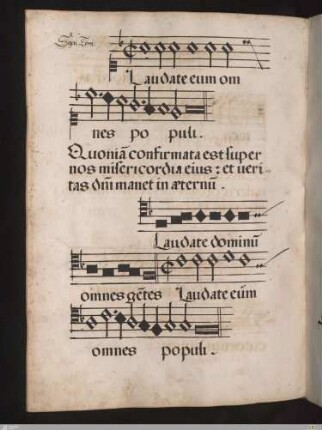 Laudate eum om
nes po puli.
Quoniã confirmata est super
nos misericordia eius: et ueri
tas dñi manet in æternũ.
Laudate dominũ
omnes gẽtes Laudate eũm
omnes populi.